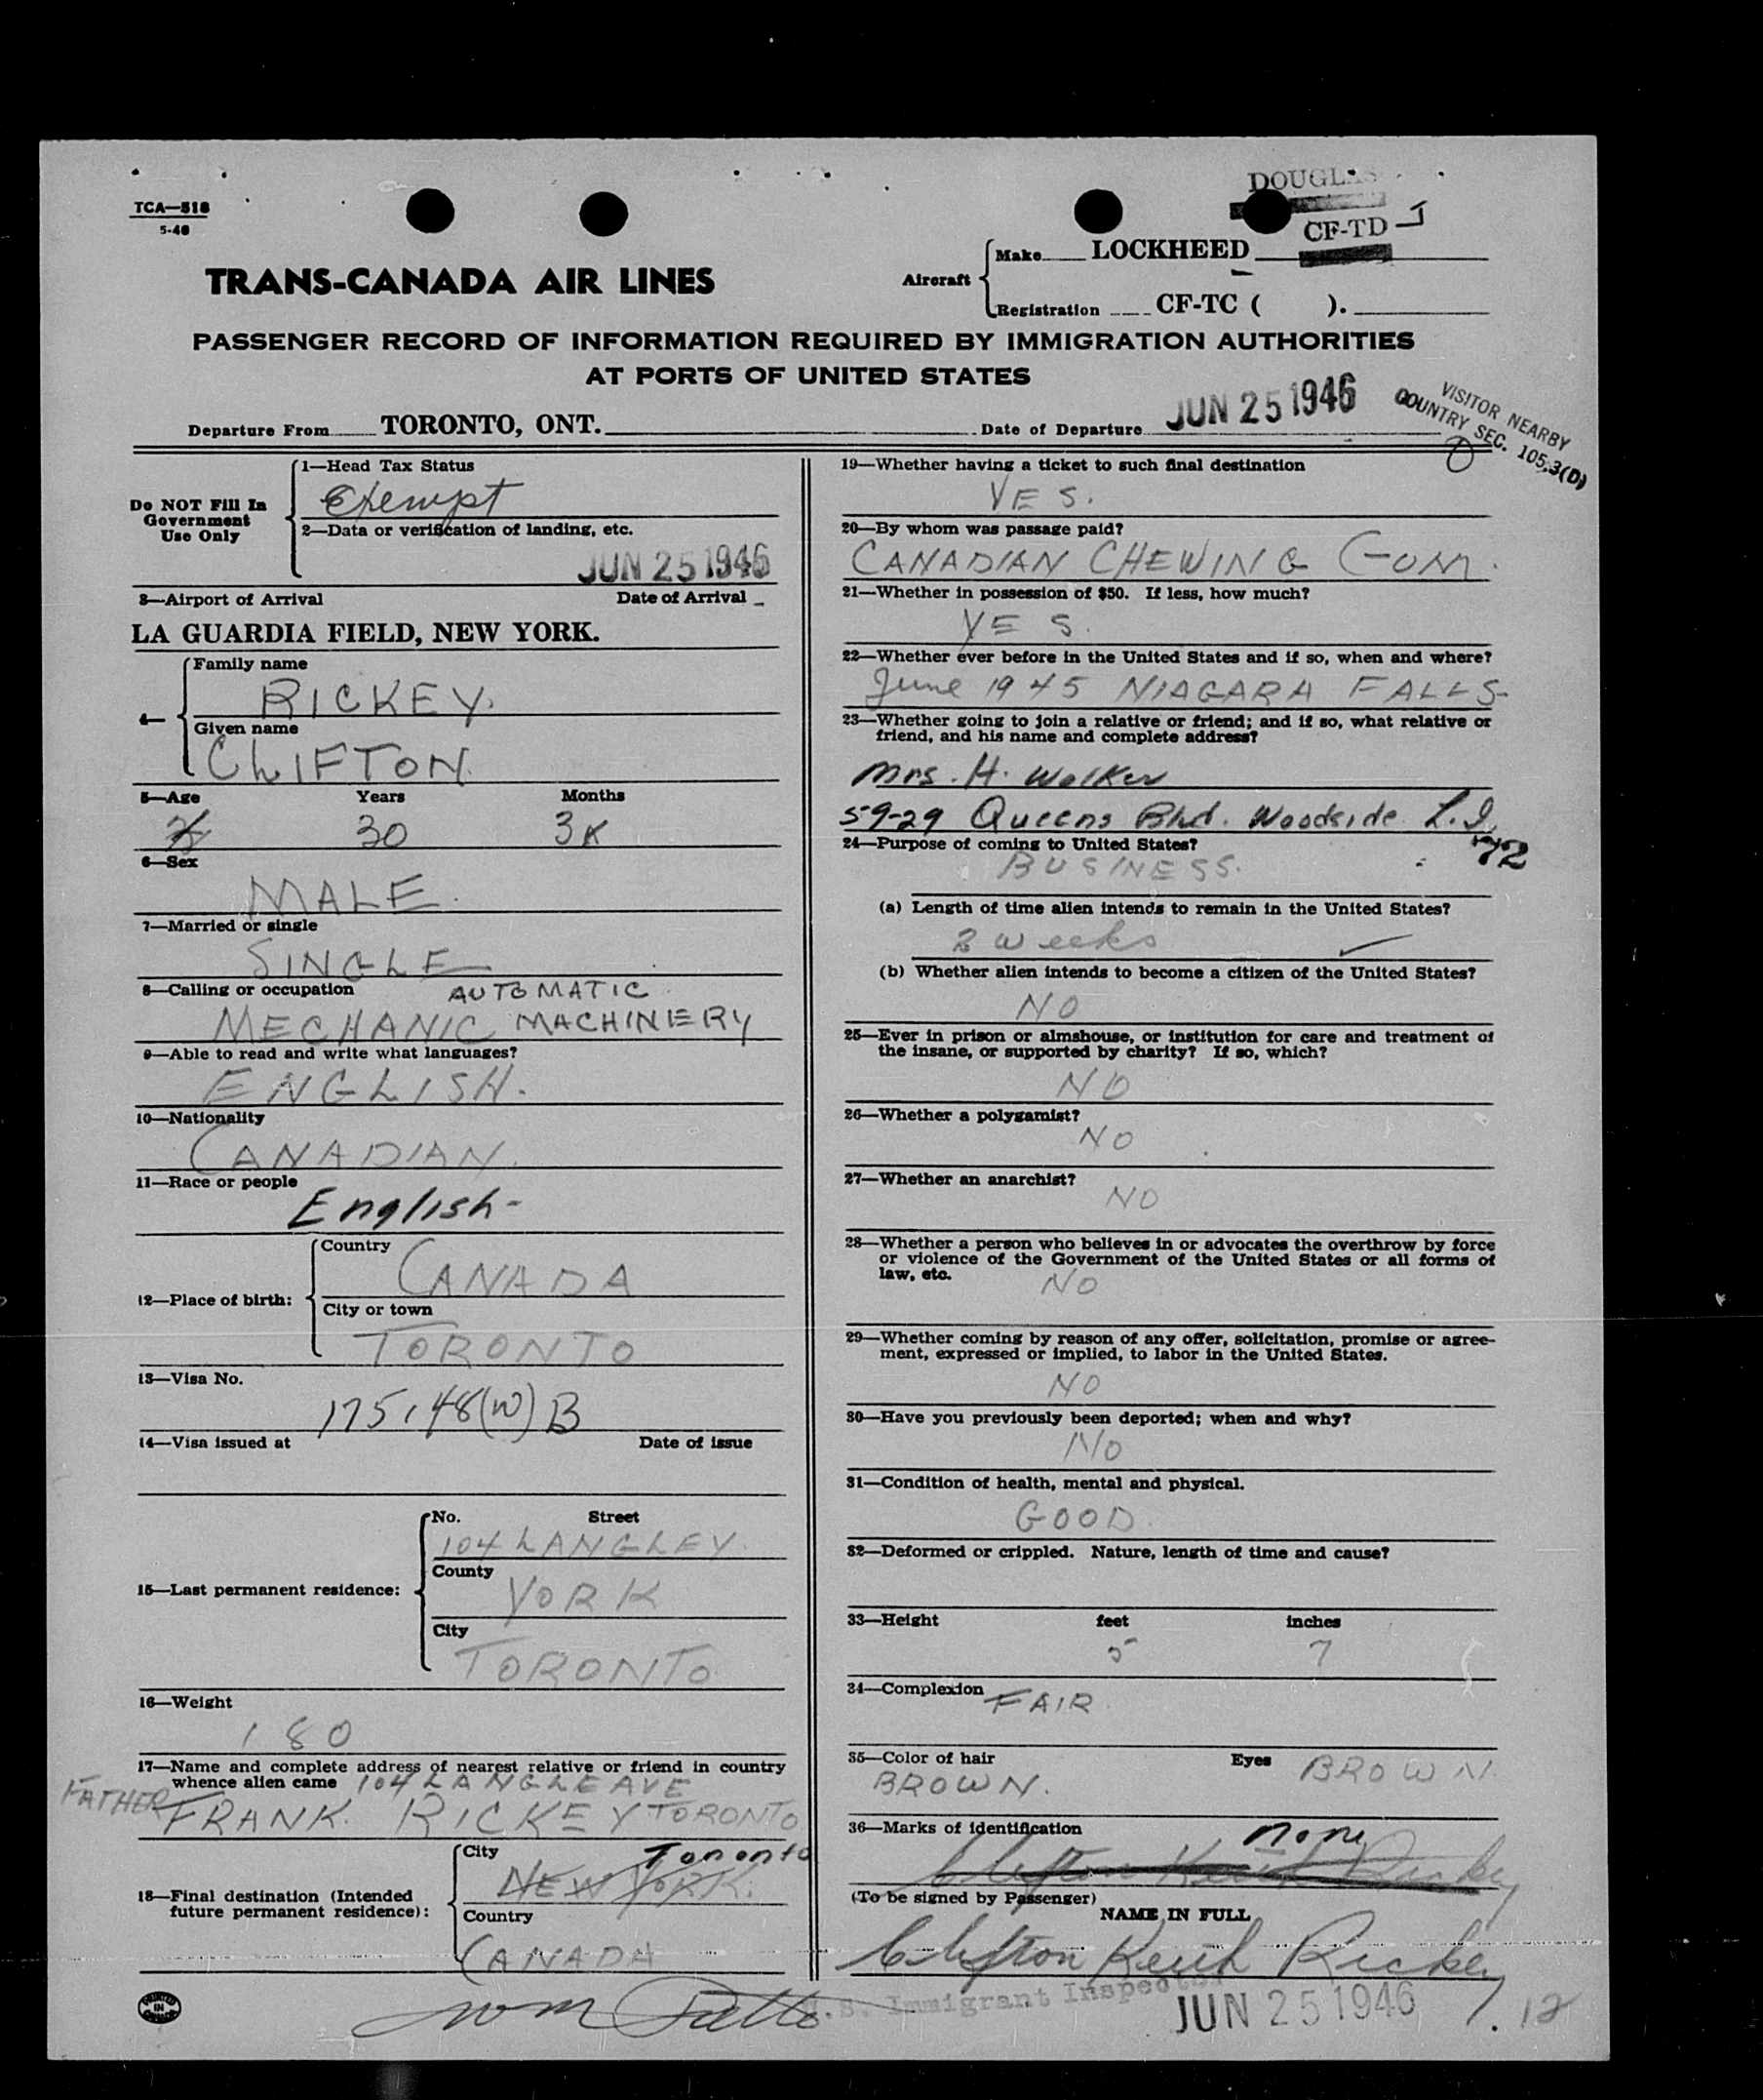 TCA—518
5-40
DOUGLAS
CF-TD J
TRANS-CANADA AIR LINES
Aircraft
Make LOCKHEED
Registration CF-TC ( ).
PASSENGER RECORD OF INFORMATION REQUIRED BY IMMIGRATION AUTHORITIES
AT PORTS OF UNITED STATES
Departure From TORONTO, ONT. Date of Departure JUN 25 1946
VISITOR NEARBY
COUNTRY SEC. 105,3(D)
Do NOT Fill In
Government
Use Only
1—Head Tax Status
Exempt
2—Data or verification of landing, etc.
JUN 25 1946
3—Airport of Arrival Date of Arrival
LA GUARDIA FIELD, NEW YORK.
4—
Family name
RICKEY.
Given name
CLIFTON
5—Age Years Months
30 3
6—Sex
MALE.
7—Married or single
SINGLE
8—Calling or occupation AUTOMATIC
MECHANIC MACHINERY
9—Able to read and write what languages?
ENGLISH.
10—Nationality
CANADIAN.
11—Race or people
English-
12—Place of birth:
Country
CANADA
City or town
TORONTO
13—Visa No.
175.48(W)B
14—Visa issued at Date of issue
15—Last permanent residence:
No. Street
104 LANGLEY.
County
YORK
City
TORONTO
16—Weight
180
17—Name and complete address of nearest relative or friend in country
whence alien came 104 LANGLE AVE
FATHER FRANK. RICKEY TORONTO
18—Final destination (Intended
future permanent residence):
City Toronto
NEW YORK.
Country
CANADA
19—Whether having a ticket to such final destination
YES.
20—By whom was passage paid?
CANADIAN CHEWING GUM.
21—Whether in possession of $50. If less, how much?
YES.
22—Whether ever before in the United States and if so, when and where?
June 1945 NIAGARA FALLS-
23—Whether going to join a relative or friend; and if so, what relative or
friend, and his name and complete address?
Mrs. H. Walker
59-29 Queens Blvd. Woodside L.I.
24—Purpose of coming to United States? 72
BUSINESS.
(a) Length of time alien intends to remain in the United States?
2 weeks
(b) Whether alien intends to become a citizen of the United States?
NO
25—Ever in prison or almshouse, or institution for care and treatment of
the insane, or supported by charity? If so, which?
NO
26—Whether a polygamist?
NO
27—Whether an anarchist?
NO
28—Whether a person who believes in or advocates the overthrow by force
or violence of the Government of the United States or all forms of
law, etc.
NO
29—Whether coming by reason of any offer, solicitation, promise or agree-
ment, expressed or implied, to labor in the United States.
NO
30—Have you previously been deported; when and why?
NO
31—Condition of health, mental and physical.
GOOD.
32—Deformed or crippled. Nature, length of time and cause?
33—Height feet inches
5 7
34—Complexion FAIR
35—Color of hair Eyes BROWN.
BROWN.
36—Marks of identification none
Clifton Keith Rickey
(To be signed by Passenger)
NAME IN FULL
Clifton Keith Rickey
U.S. Immigrant Inspector
JUN 25 1946
PRINTED
IN